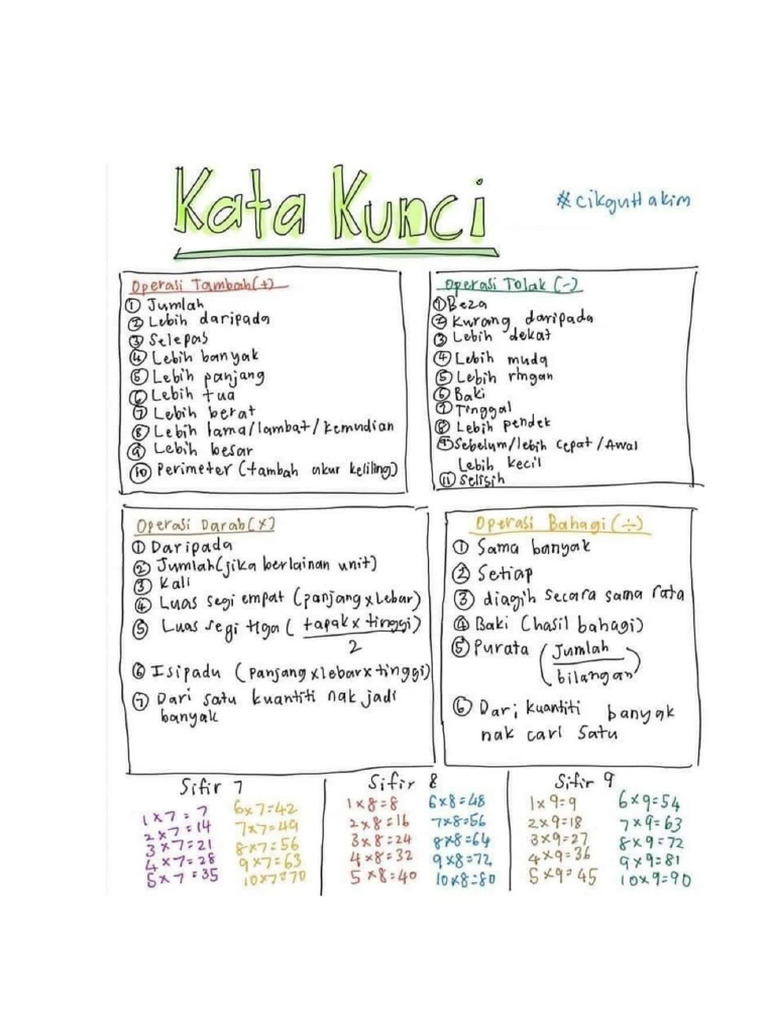 Kata Kunci
#cikguHakim
Operasi Tambah (+)
① Jumlah
② Lebih daripada
③ Selepas
④ Lebih banyak
⑤ Lebih panjang
⑥ Lebih tua
⑦ Lebih berat
⑧ Lebih lama/lambat/kemudian
⑨ Lebih besar
⑩ Perimeter (tambah ukur keliling)
Operasi Tolak (-)
① Beza
② Kurang daripada
③ Lebih dekat
④ Lebih muda
⑤ Lebih ringan
⑥ Baki
⑦ Tinggal
⑧ Lebih pendek
⑨ Sebelum/lebih cepat/Awal
Lebih kecil
⑪ Selisih
Operasi Darab (×)
① Daripada
② Jumlah (jika berlainan unit)
③ Kali
④ Luas segi empat (panjang x lebar)
⑤ Luas segi tiga (tapak x tinggi)
2
⑥ Isipadu (panjang x lebar x tinggi)
⑦ Dari satu kuantiti nak jadi
banyak
Operasi Bahagi (÷)
① Sama banyak
② Setiap
③ diagih secara sama rata
④ Baki (hasil bahagi)
⑤ Purata (Jumlah
bilangan)
⑥ Dari kuantiti banyak
nak cari satu
Sifir 7
1 x 7 = 7
2 x 7 = 14
3 x 7 = 21
4 x 7 = 28
5 x 7 = 35
6 x 7 = 42
7 x 7 = 49
8 x 7 = 56
9 x 7 = 63
10 x 7 = 70
Sifir 8
1 x 8 = 8
2 x 8 = 16
3 x 8 = 24
4 x 8 = 32
5 x 8 = 40
6 x 8 = 48
7 x 8 = 56
8 x 8 = 64
9 x 8 = 72
10 x 8 = 80
Sifir 9
1 x 9 = 9
2 x 9 = 18
3 x 9 = 27
4 x 9 = 36
5 x 9 = 45
6 x 9 = 54
7 x 9 = 63
8 x 9 = 72
9 x 9 = 81
10 x 9 = 90